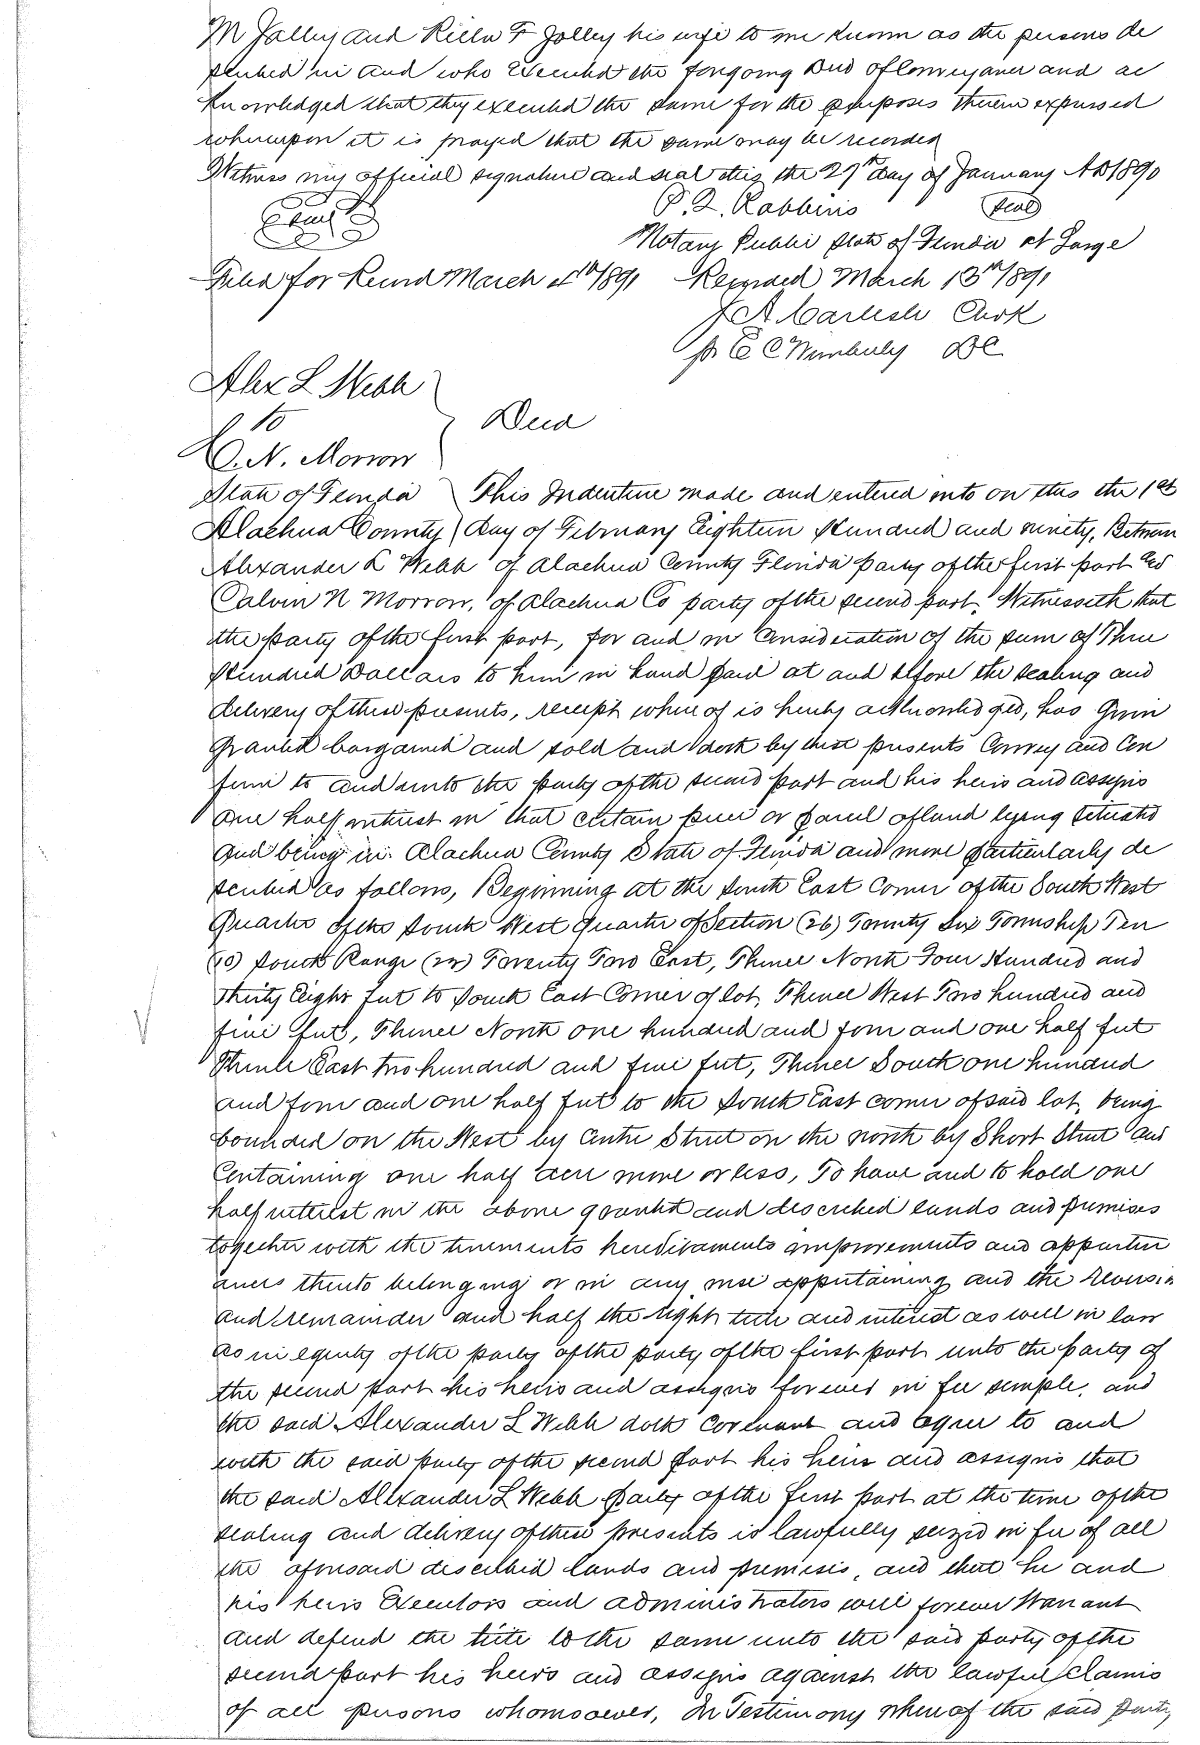 M Jolley and Rilla F Jolley his wife to me known as the persons de
scribed in and who executed the foregoing Deed of Conveyance and ac
knowledged that they executed the same for the purposes therein expressed
whereupon it is prayed that the same may be recorded
Witness my official signature and seal this the 27th day of January AD 1890
Seal P. L. Robbins Seal
Notary Public State of Florida at Large
Filed for Record March 4th 1891 Recorded March 13th 1891
J A Carlisle Clerk
pr E C Wimberly DC
Alex L Webb
to Deed
C. N. Morrow
State of Florida This Indenture made and entered into on this the 1st
Alachua County day of February Eighteen Hundred and ninety, Between
Alexander L Webb of Alachua County Florida party of the first part and
Calvin N Morrow, of Alachua Co party of the second part, Witnesseth that
the party of the first part, for and in Consideration of the sum of Three
Hundred Dollars to him in hand paid at and before the sealing and
delivery of these presents, receipt where of is hereby acknowledged, has Given
Granted bargained and sold and doth by these presents Convey and Con
firm to and unto the party of the second part and his heirs and assigns
One half interest in that certain piece or parcel of land lying situated
and being in Alachua County State of Florida and more particularly de
scribed as follows, Beginning at the South East Corner of the South West
Quarter of the South West quarter of Section (26) Twenty Six Township Ten
(10) South Range (22) Twenty Two East, Thence North Four Hundred and
Thirty Eight feet to South East Corner of lot, Thence West Two hundred and
five feet, Thence North one hundred and four and one half feet
Thence East two hundred and five feet, Thence South one hundred
and four and one half feet to the South East corner of said lot, being
bounded on the West by Centre Street on the north by Short Street and
Containing one half acre more or less, To have and to hold one
half interest in the above granted and described lands and premises
together with the tenements hereditaments improvements and appurten
ances thereto belonging or in any wise appertaining and the reversion
and remainder and half the right title and interest as well in law
as in equity of the party of the party of the first part unto the party of
the second part his heirs and assigns forever in fee simple, and
the said Alexander L Webb doth Covenant and agree to and
with the said party of the second part his heirs and assigns that
the said Alexander L Webb party of the first part at the time of the
sealing and delivery of these presents is lawfully seized in fee of all
the aforesaid described lands and premises, and that he and
his heirs Executors and administrators will forever Warrant
and defend the title to the same unto the said party of the
second part his heirs and assigns against the lawful claims
of all persons whomsoever, In Testimony where of the said party